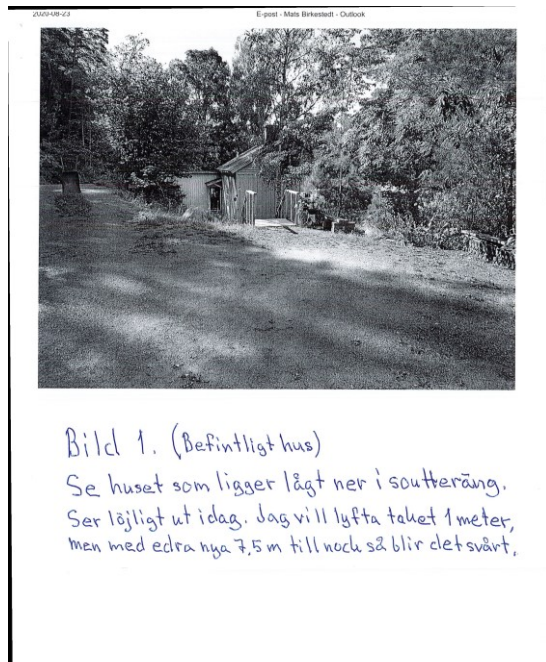 2020-08-23 E-post - Mats Birkestedt - Outlook
Bild 1. (Befintligt hus)
Se huset som ligger lågt ner i soutteräng.
Ser löjligt ut idag. Jag vill lyfta taket 1 meter,
men med edra nya 7,5 m till nock så blir det svårt.